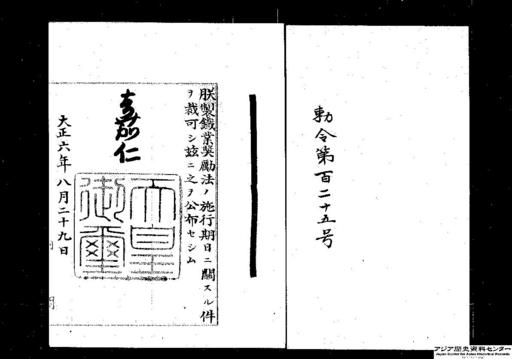 勅令第百二十五号
朕製鐵業奨勵法ノ施行期日ニ關スル件
ヲ裁可シ茲ニ之ヲ公布セシム
嘉仁
天皇
御璽
大正六年八月二十九日
アジア歴史資料センター
Japan Center for Asian Historical Records